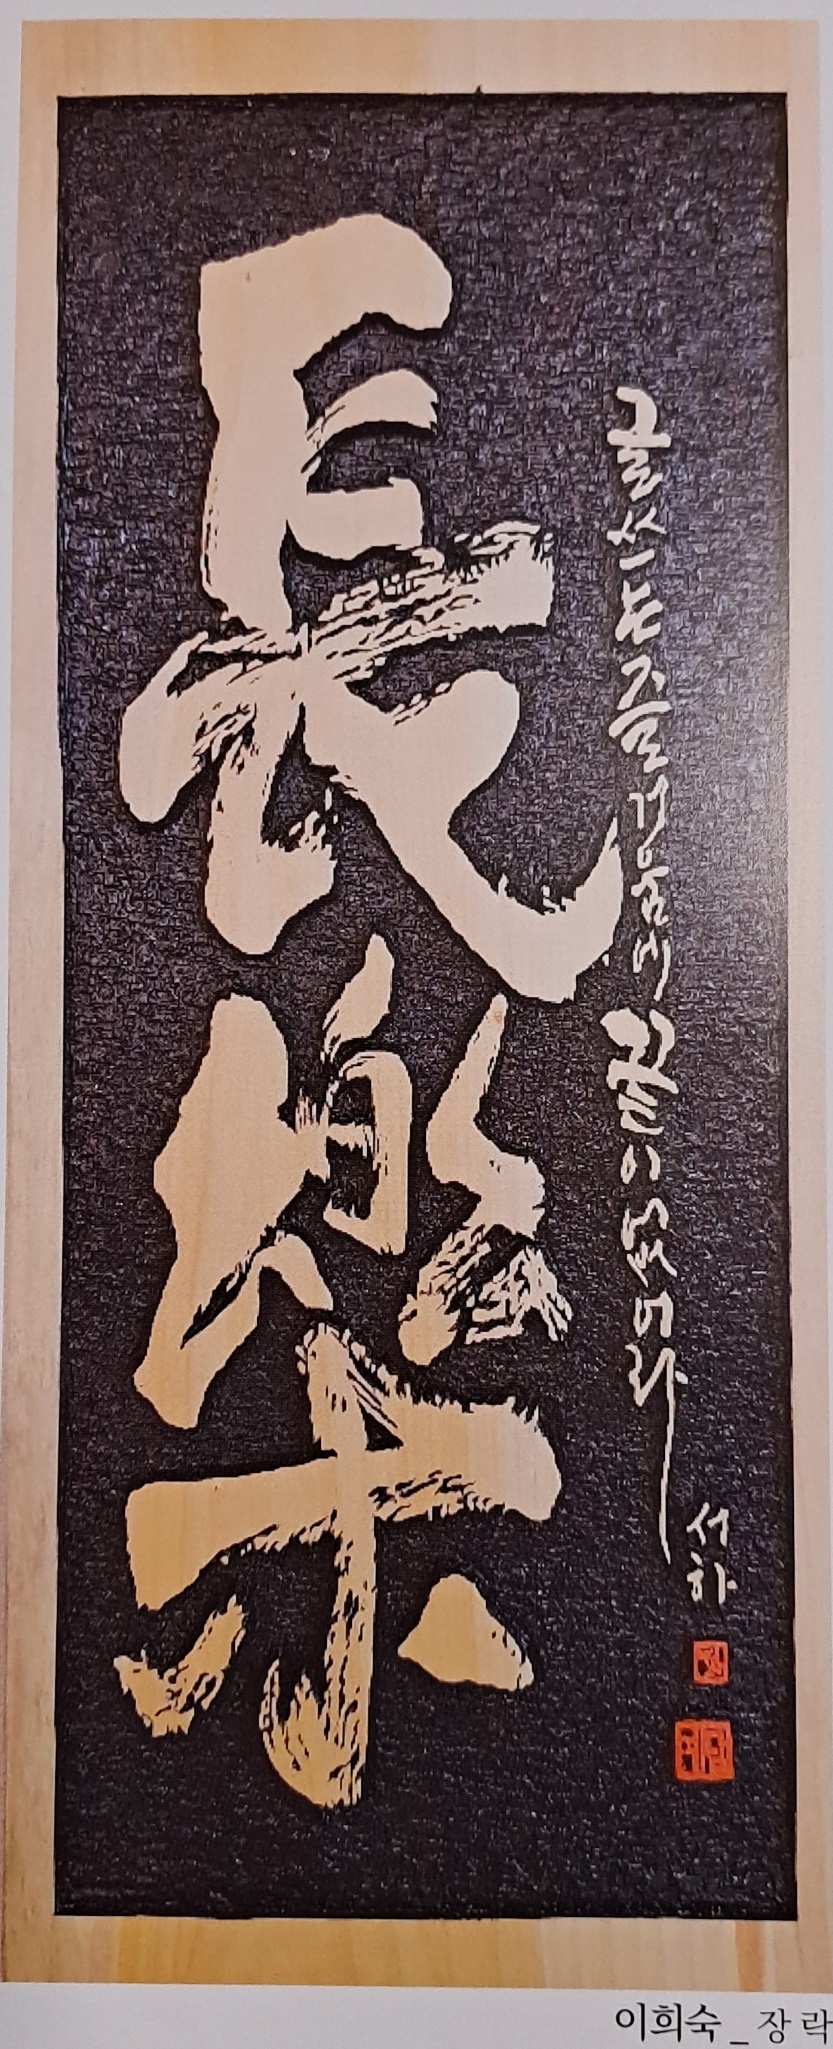 長樂
글 쓰는 즐거움에 끝이 없어라
서하
이희숙 _ 장 락